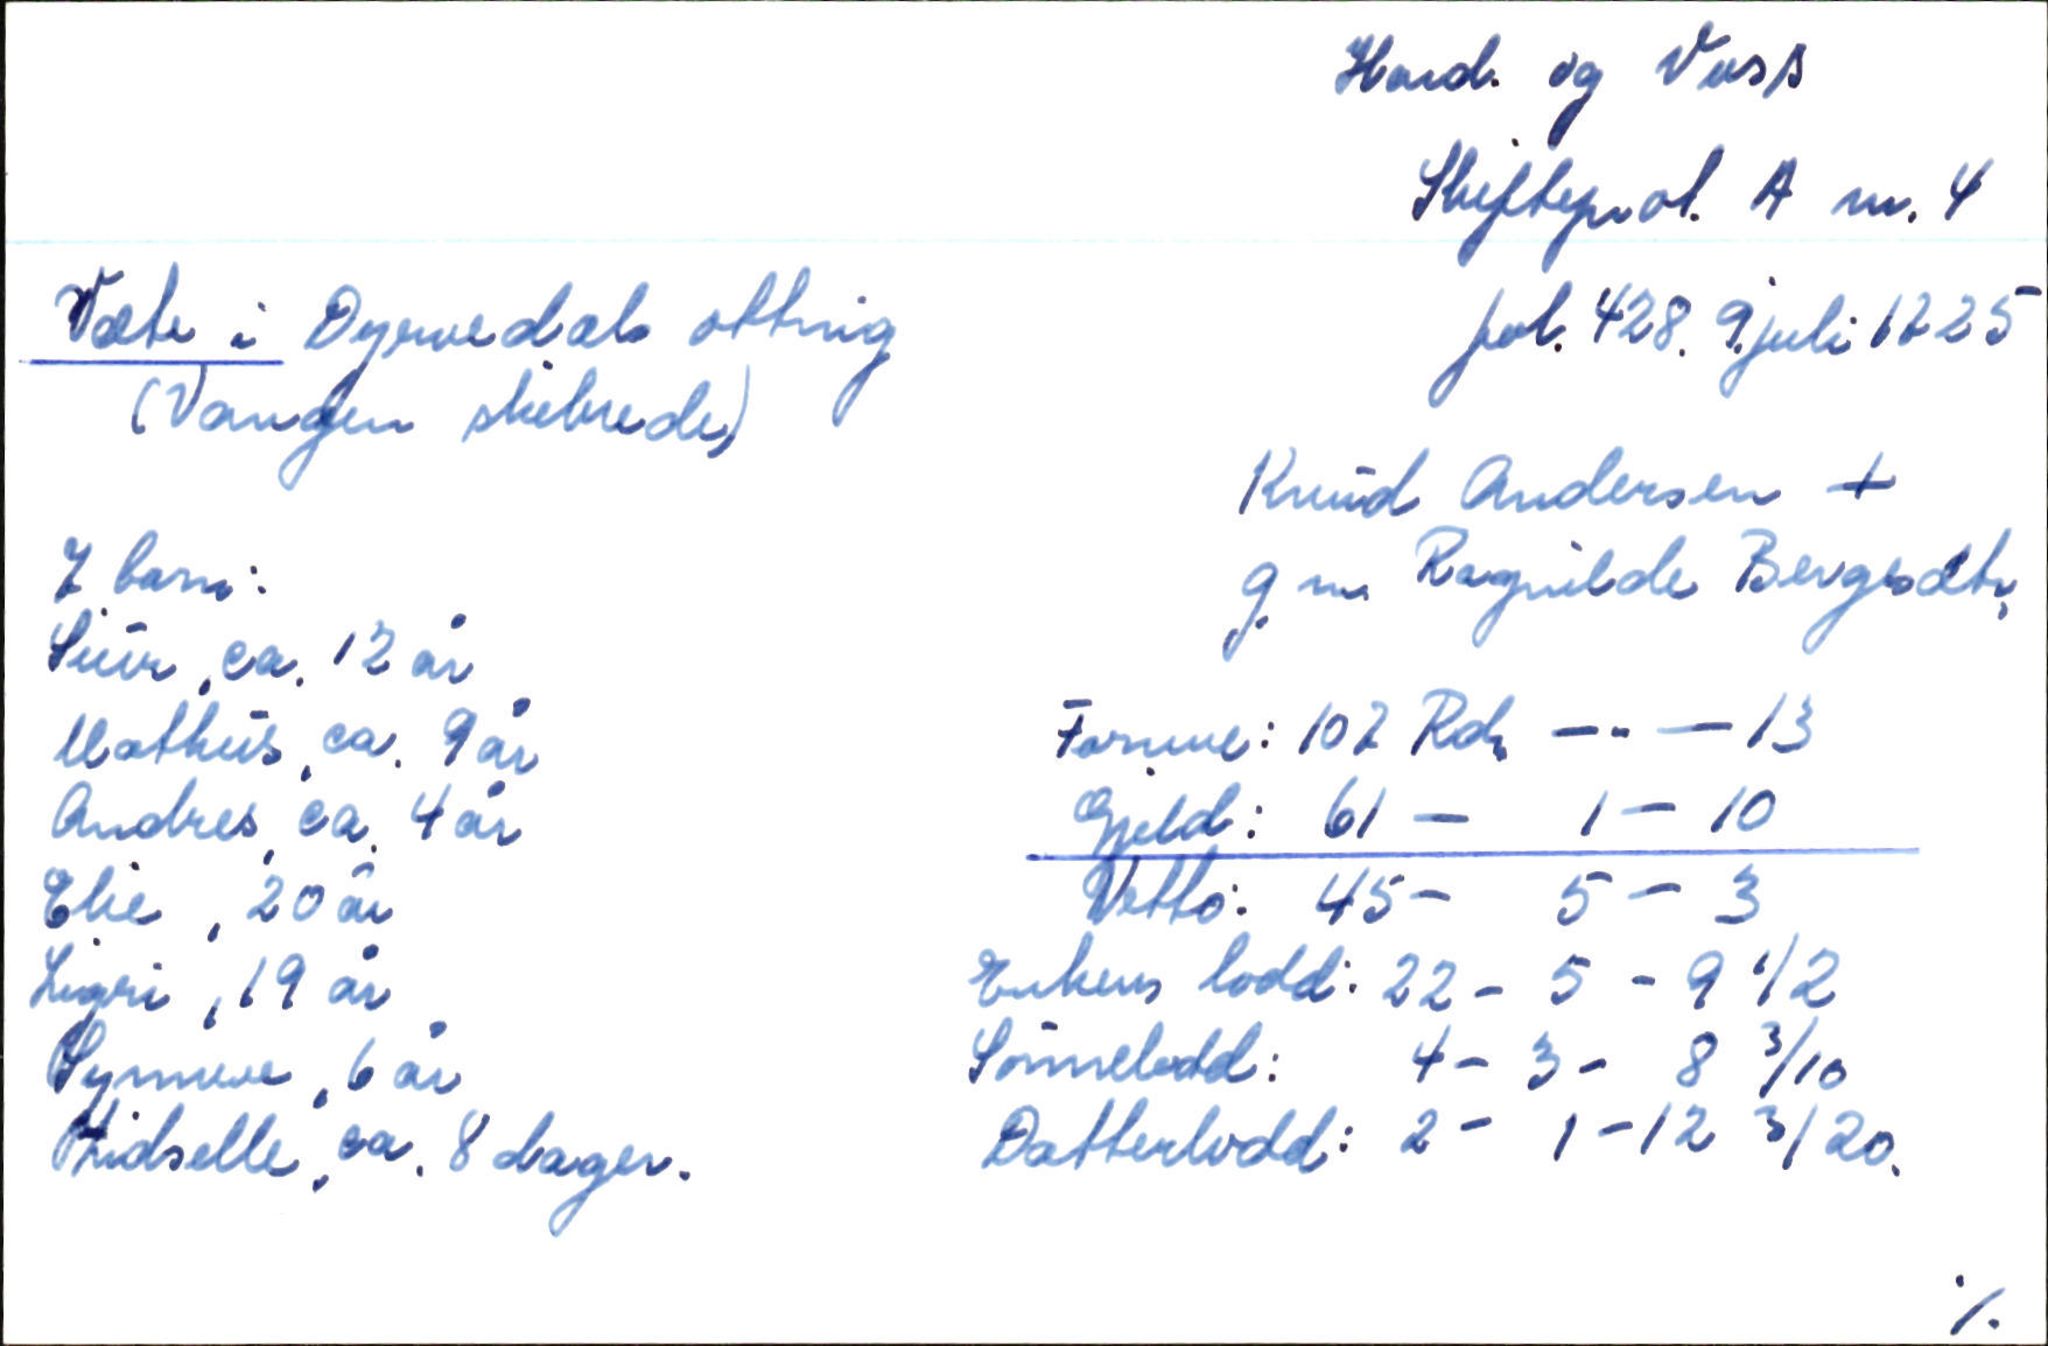 Hard. og Voss
Skifteprot. A nr. 4
fol. 428. 9. juli 1725
Væte i Dyrvedals ottnig
(Vangen skibrede)
Knud Andersen +
g. m. Ragnilde Bergesdtr,
7 barn:
Siur, ca. 12 år
Mathus, ca. 9 år
Andres, ca. 4 år
Elie, 20 år
Sigri, 19 år
Synneve, 6 år
Zidselle, ca. 8 dager.
Formue: 107 Rdr --- — 13
Gjeld: 61 — 1 — 10
Netto: 45 — 5 — 3
Enkens lodd: 22 - 5 - 9 1/2
Sönnelodd: 4 - 3 - 8 3/10
Datterlodd: 2 - 1 - 12 3/20.
./.